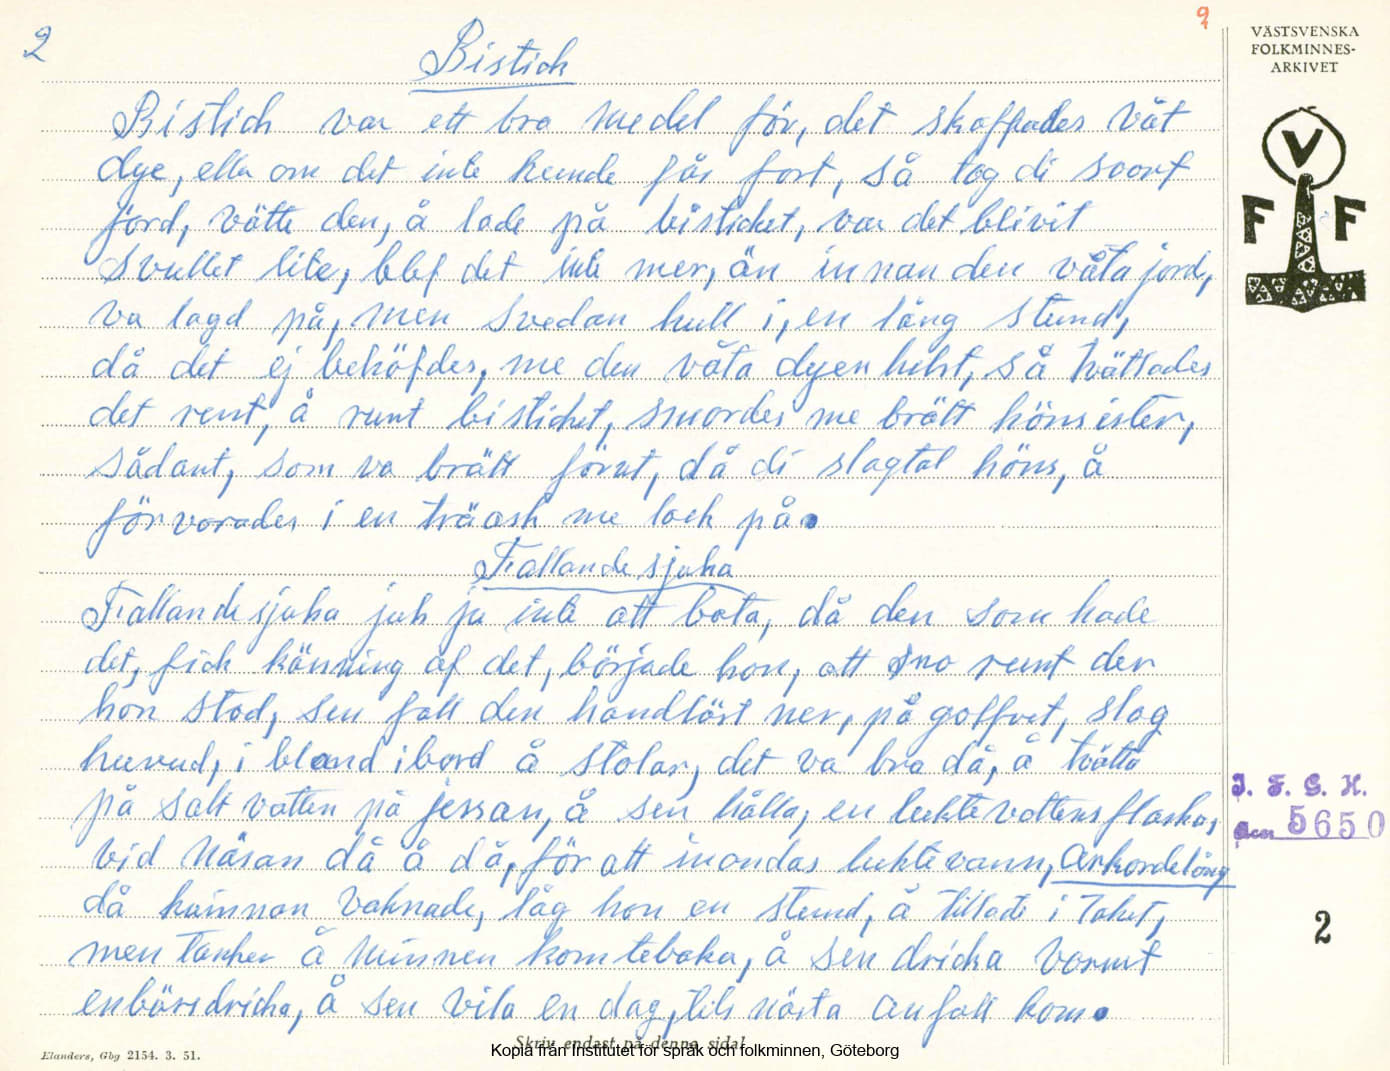 2
9
VÄSTSVENSKA
FOLKMINNES-
ARKIVET
V
F F
Bistick
Bistick var ett bra medel för, det skaffades våt
dye, eller om det inte kunde fås fort, så tog di svort
jord, vätte den, å lade på bisticket, var det blivit
svullet lite, blef det inte mer, än innan den våta jord,
va lagd på, men svedan hull i, en lång stund,
då det ej behöfdes, me den våta dyen helst, så tvättades
det rent, å runt bisticket, smordes me brätt hönsister,
sådant, som va brätt förut, då di slagtat höns, å
förvarades i en träask me lock på.
Fallandesjuka
Fallandesjuka jick ju inte att bota, då den som hade
det, fick känning af det, började hon, att sno runt der
hon stod, sen fall den handlöst ner, på golfvet, slog
huvud, i bland ibord å stolar, det va bra då, å tvätta
på salt vatten på jessan, å sen hålla, en luktevattensflaska,
vid näsan då å då, för att inandas luktevann, Ankordelång
då kvinnan vaknade, låg hon en stund, å tittade i taket,
men tanker å minnen kom tebaka, å sen dricka varmt
enbärsdricka, å sen vila en dag, tils nästa anfall kom.
I. F. G. H.
Acc 5650
2
Skriv endast på denna sida!
Elanders, Gbg 2154. 3. 51.
Kopia från Institutet för språk och folkminnen, Göteborg